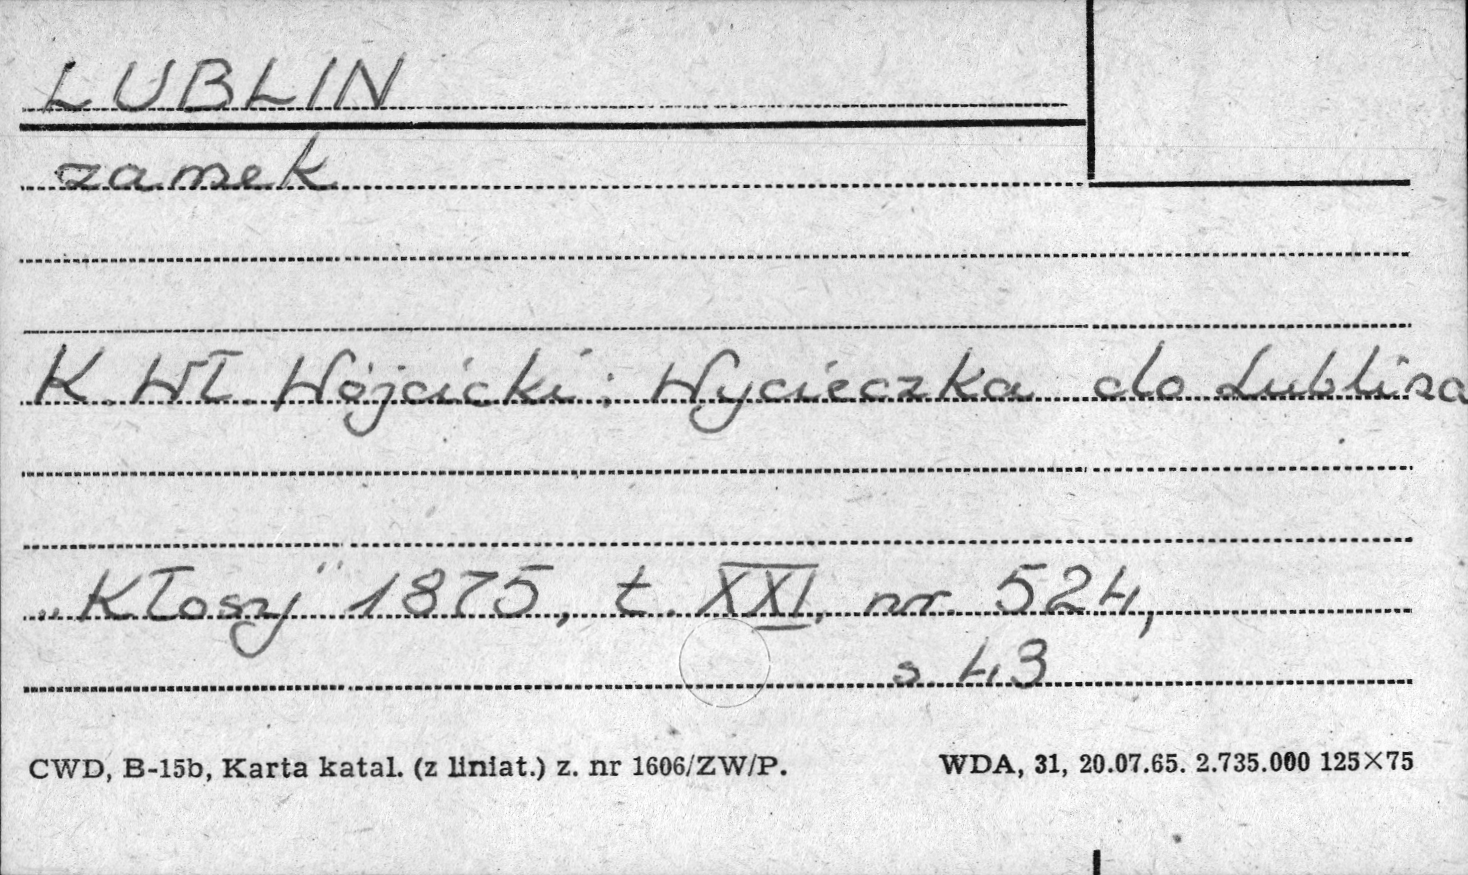 LUBLIN
zamek
K. Wł. Wójcicki: Wycieczka do Lublina
„Kłosy” 1875, t. XXI, nr 524,
s 43
CWD, B-15b, Karta katal. (z liniat.) z. nr 1606/ZW/P. WDA, 31, 20.07.65. 2.735.000 125×75